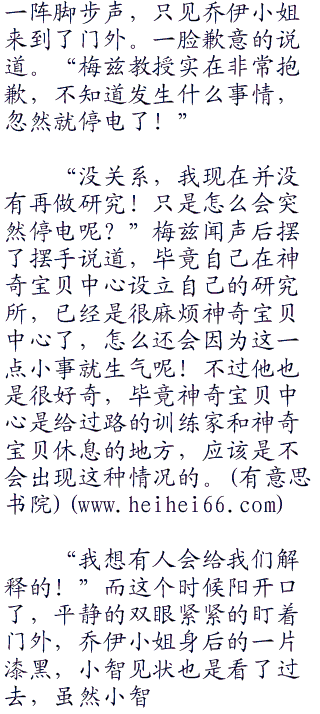 一阵脚步声，只见乔伊小姐
来到了门外。一脸歉意的说
道。“梅兹教授实在非常抱
歉，不知道发生什么事情，
忽然就停电了！”
“没关系，我现在并没
有再做研究！只是怎么会突
然停电呢？”梅兹闻声后摆
了摆手说道，毕竟自己在神
奇宝贝中心设立自己的研究
所，已经是很麻烦神奇宝贝
中心了，怎么还会因为这一
点小事就生气呢！不过他也
是很好奇，毕竟神奇宝贝中
心是给过路的训练家和神奇
宝贝休息的地方，应该是不
会出现这种情况的。(有意思
书院)(www.heihei66.com)
“我想有人会给我们解
释的！”而这个时候阳开口
了，平静的双眼紧紧的盯着
门外，乔伊小姐身后的一片
漆黑，小智见状也是看了过
去，虽然小智